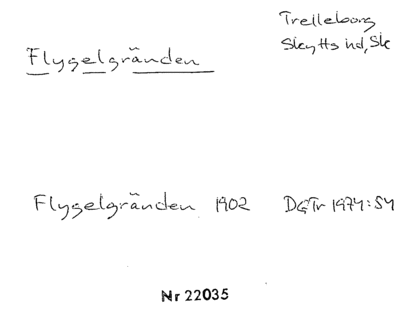 Trelleborg
Skytts hd, Sk
Flygelgränden
Flygelgränden 1902 DGTr 1974:54
Nr 22035